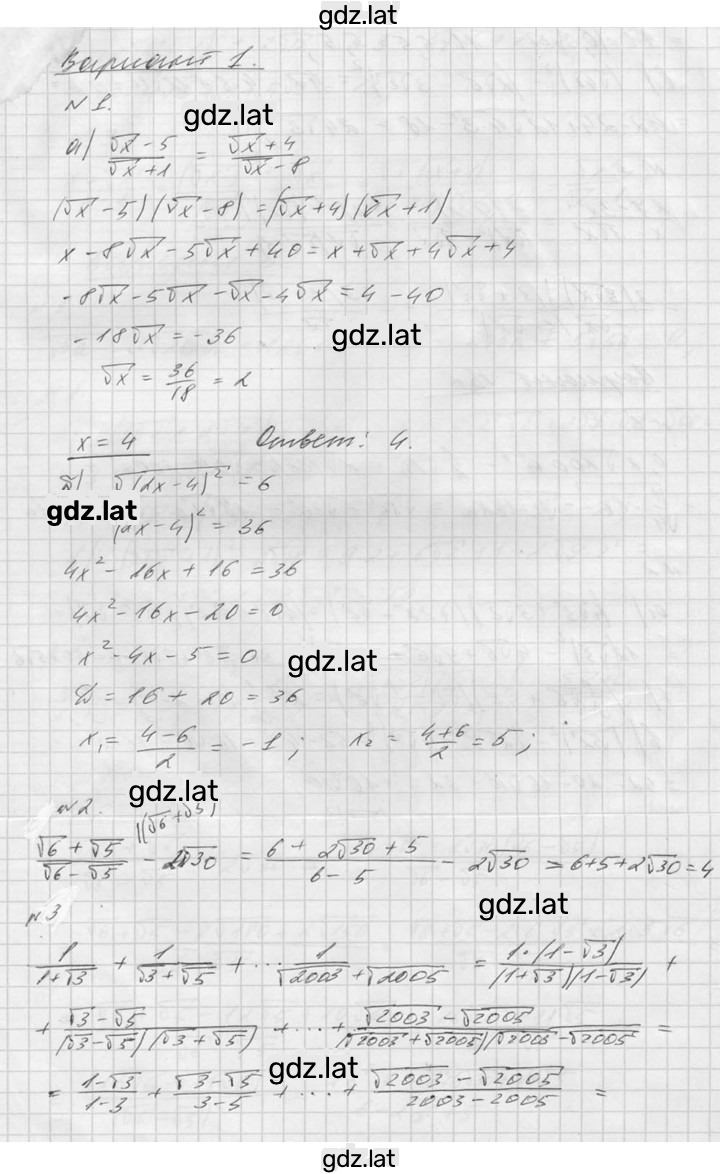 gdz.lat
Вариант 1.
№1.
gdz.lat
а) (√x - 5)/(√x + 1) = (√x + 4)/(√x - 8)
(√x - 5)(√x - 8) = (√x + 4)(√x + 1)
x - 8√x - 5√x + 40 = x + √x + 4√x + 4
-8√x - 5√x - √x - 4√x = 4 - 40
-18√x = -36
gdz.lat
√x = 36/18 = 2
x = 4 Ответ: 4.
б) √(2x - 4)² = 6
gdz.lat
(2x - 4)² = 36
4x² - 16x + 16 = 36
4x² - 16x - 20 = 0
x² - 4x - 5 = 0
gdz.lat
D = 16 + 20 = 36
x₁ = (4 - 6)/2 = -1; x₂ = (4 + 6)/2 = 5;
gdz.lat
№2.
(√6 + √5)/(√6 - √5) |(√6 + √5) - 2√30 = (6 + 2√30 + 5)/(6 - 5) - 2√30 = 6+5+2√30 = 4
gdz.lat
№3
1/(1+√3) + 1/(√3+√5) + ... 1/(√2003+√2005) = 1·(1-√3)/((1+√3)(1-√3)) +
+ (√3-√5)/((√3-√5)(√3+√5)) + ... + (√2003-√2005)/((√2003+√2005)(√2003-√2005)) =
gdz.lat
= (1-√3)/(1-3) + (√3-√5)/(3-5) + ... + (√2003-√2005)/(2003-2005) =
gdz.lat